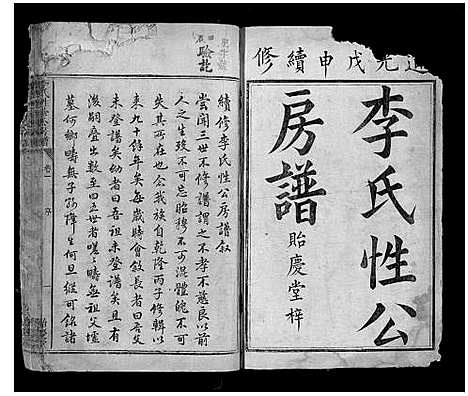 道光戊申續修
李氏性公
房譜
貽慶堂梓
驗訖
續修李氏性公房譜敘
嘗聞三世不修譜謂之不孝不慈良以前
人之生歿不可忘昭穆不可混體魄不可
失其所在也余我族自乾隆丙子修輯以
來九十餘年矣每歲時會敘長者曰吾父
未登譜矣幼者曰吾祖未登譜矣且有
潑嗣疊出數至四五世者嗟嗟疇無祖父墳
墓何鄉疇無子孫降生何旦縱可銘諸